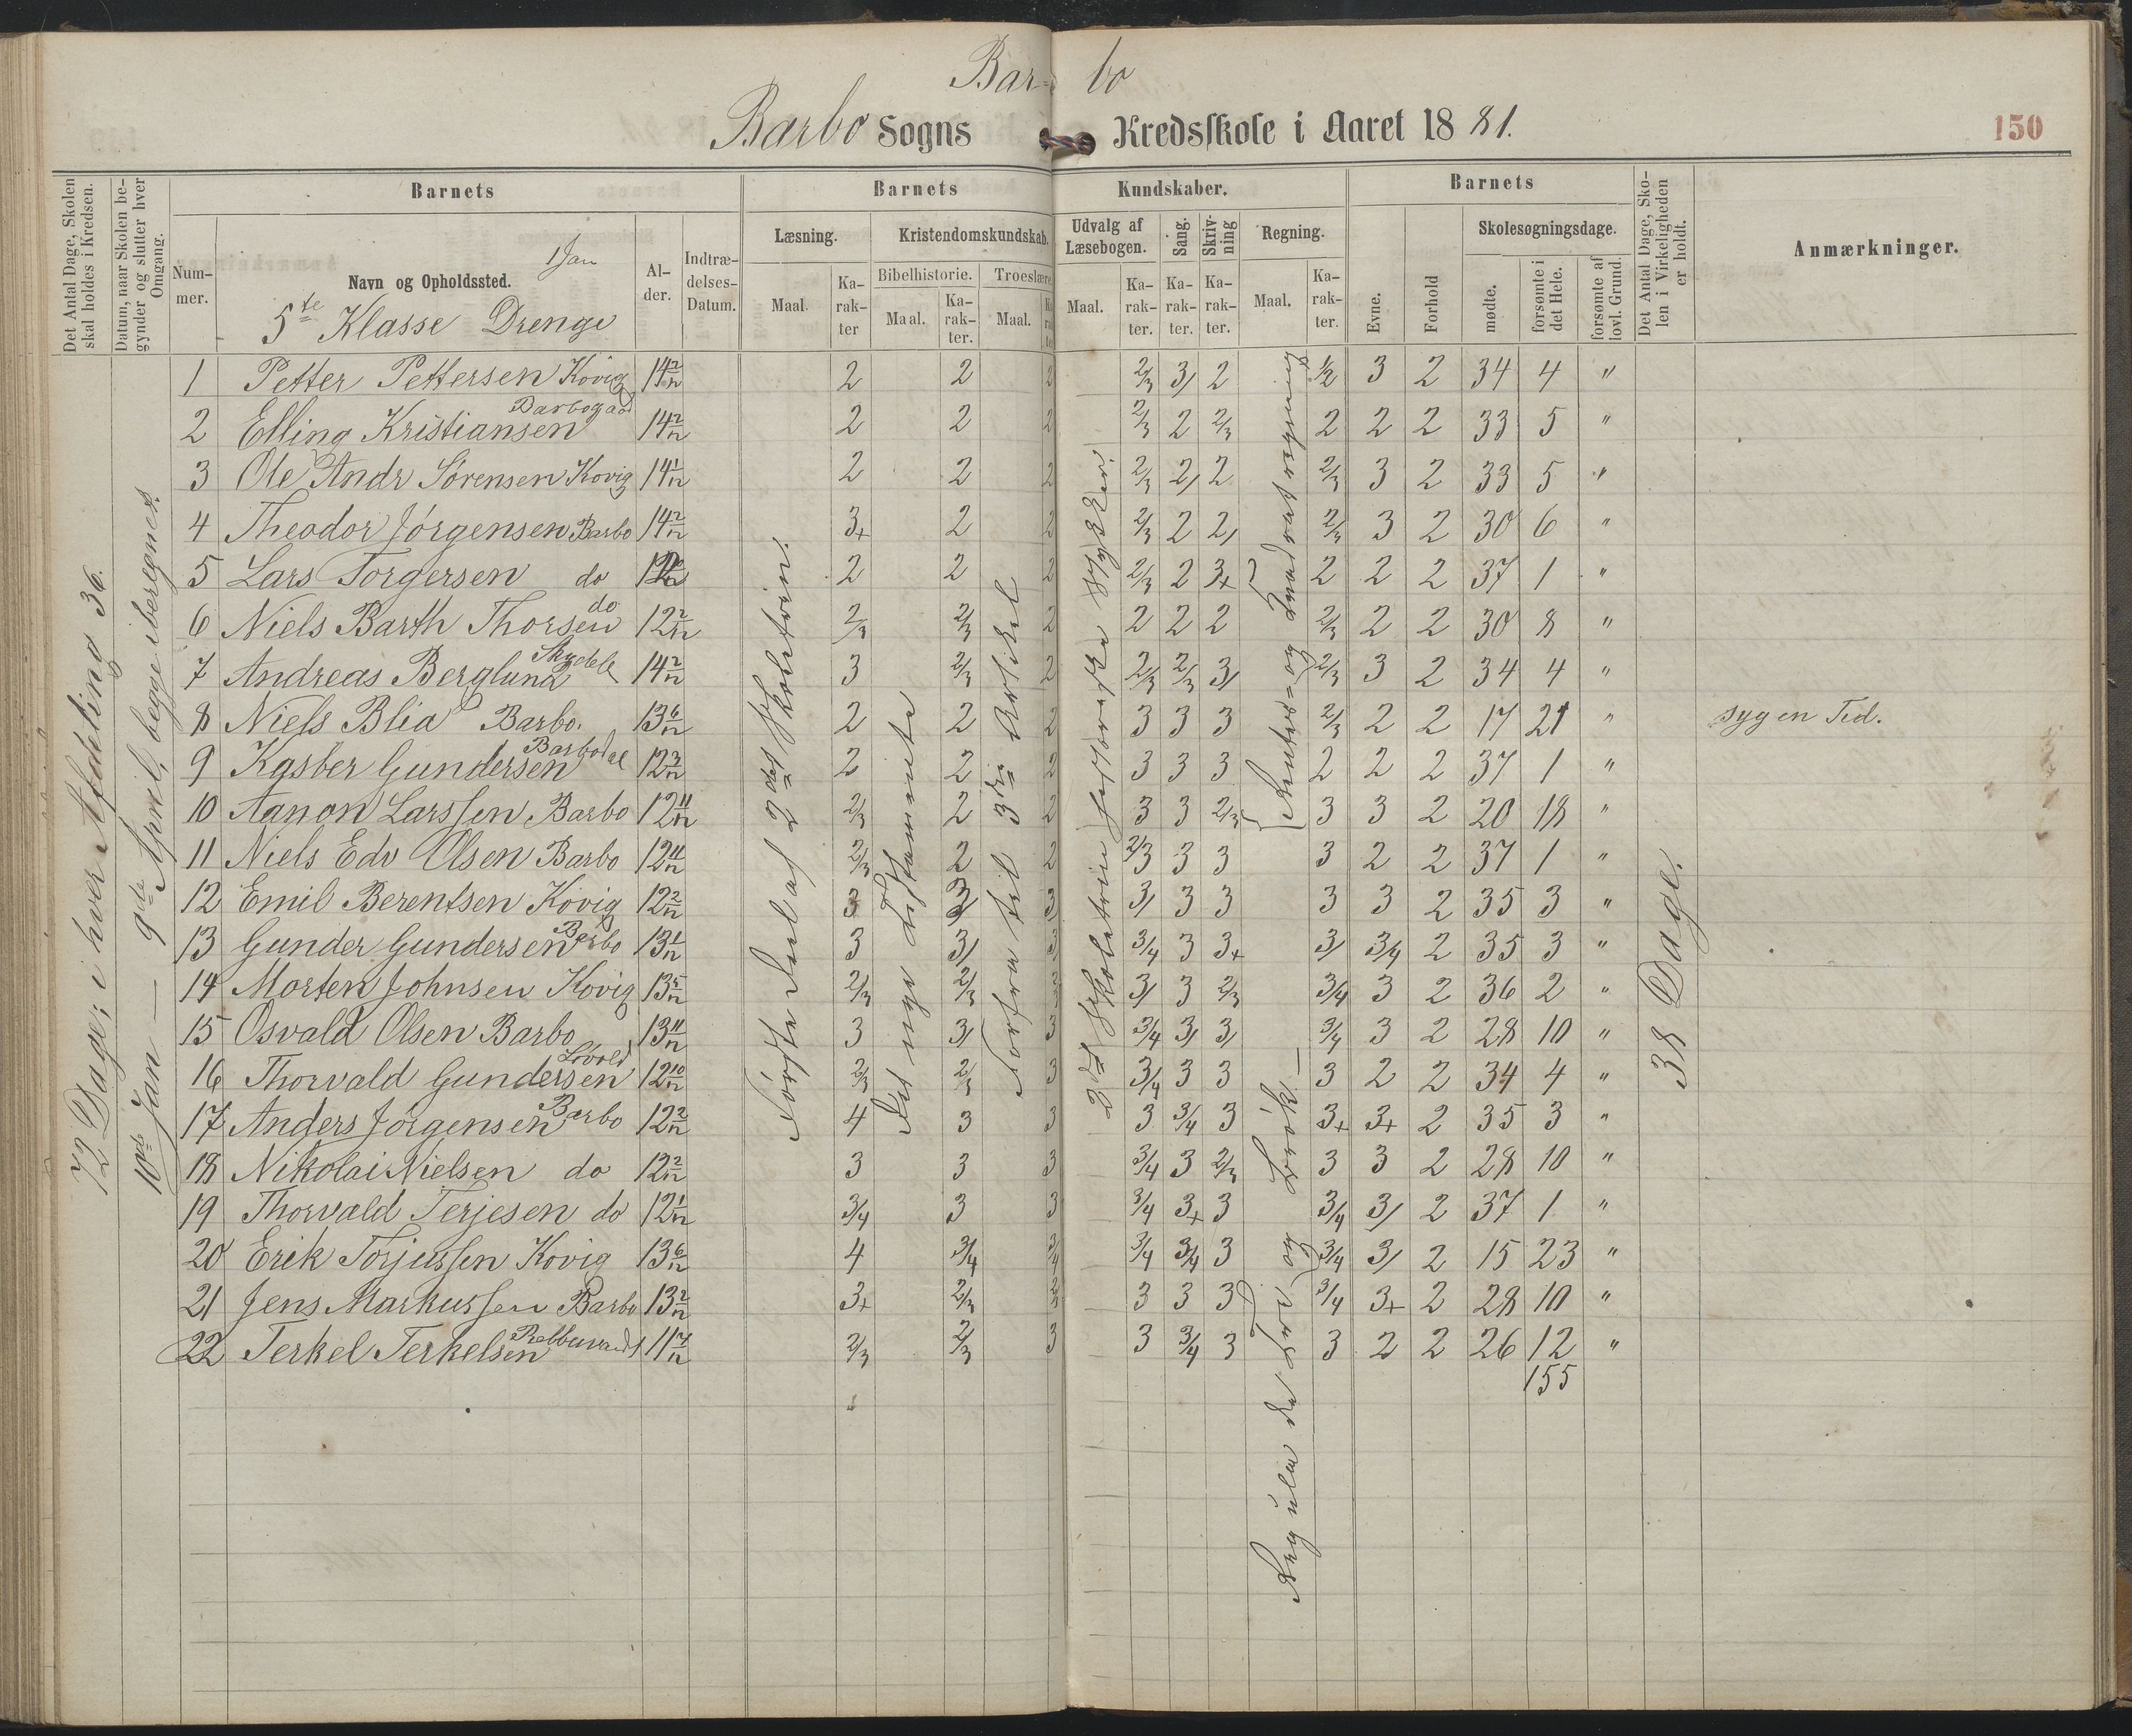 Bar- bo
Barbo Sogns Kredsskole i Aaret 1881.
150
Det Antal Dage, Skolen skal holdes i Kredsen.
Datum, naar Skolen begynder og slutter hver Omgang.
Barnets
Barnets Kundskaber.
Barnets
Det Antal Dage, Skolen i Virkeligheden er holdt.
Anmærkninger.
Nummer.
Navn og Opholdssted.
1 Jan
5te Klasse Drenge
Alder.
Indtrædelses-Datum.
Læsning.
Kristendomskundskab.
Udvalg af Læsebogen.
Sang.
Skrivning
Regning.
Evne.
Forhold
Skolesøgningsdage.
Maal.
Karakter
Bibelhistorie.
Troeslære
Maal.
Karakter.
Maal.
Maal.
Karakter.
Karakter.
Karakter.
Maal.
Karakter.
mødte.
forsømte i det Hele.
forsømte af lovl. Grund.
72 Dage; i hver Afdeling 36.
10de Jan — 9de April, begge iberegnet.
Første Deel af 2det Skoletrin.
Det nye Testamente
Forfra til 3die Artikel
2det Skoletrin historiske Stykker.
Rentes- og Kvadratregning
Regula de Tri og Brøk —
38 Dage.
1 Petter Pettersen Kovig 14 2/12 2 2 2 2/3 3/ 2 1/2 3 2 34 4 "
2 Elling Kristiansen Barbogaard 14 2/12 2 2 2 2/3 2 2/3 2 2 2 33 5 "
3 Ole Andr Sørensen Kovig 14 1/12 2 2 2 2/3 2/ 2 2/3 3 2 33 5 "
4 Theodor Jørgensen Barbo 14 2/12 3+ 2 2 2/3 2 2/ 2/3 3 2 30 6 "
5 Lars Torgersen do 2 2 2 2/3 2 3+ 2 2 2 37 1 "
6 Niels Barth Thorsen do 12 2/12 2/3 2/3 2 2 2 2 2/3 2 2 30 8 "
7 Andreas Berglund 14 2/12 3 2/3 2 2/3 2/3 3/ 2/3 3 2 34 4 "
8 Niels Blia Barbo. 13 6/12 2 2 2 3 3 3 2/3 2 2 17 21 " syg en Tid.
9 Kasber Gundersen Barbodal 12 2/12 2 2 2 3 3 3 2 2 2 37 1 "
10 Aanon Larssen Barbo 12 11/12 2/3 2 2 3 3 2/3 3 3 2 20 18 "
11 Niels Edv Olsen Barbo 12 11/12 2/3 2 2 2/3 3 3 3 2 2 37 1 "
12 Emil Berentsen Kovig 12 2/12 3 3/ 3/ 3/ 3 3 3 3 2 35 3 "
13 Gunder Gundersen Barbo 13 1/12 3 3/ 3/ 3/4 3 3+ 3/ 3/4 2 35 3 "
14 Morten Johnsen Kovig 13 5/12 2/3 2/3 3 3/ 3 2/3 3/4 3 2 36 2 "
15 Osvald Olsen Barbo 13 11/12 3 3/ 3 3/4 3/ 3/ 3/4 3 2 28 10 "
16 Thorvald Gundersen Lovold 12 10/12 2/3 2/3 3 3/4 3 3 3 2 2 34 4 "
17 Anders Jørgensen Barbo 12 2/12 4 3 3 3 3/4 3 3+ 3+ 2 35 3 "
18 Nikolai Nielsen do 12 2/12 3 3 3 3/4 3 2/3 3 3 2 28 10 "
19 Thorvald Terjesen do 12 1/12 3/4 3 3 3/4 3+ 3 3/4 3/ 2 37 1 "
20 Erik Torjussen Kovig 13 6/12 4 3/4 3/4 3/4 3/4 3 3/4 3/ 2 15 23 "
21 Jens Markussen Barbo 13 2/12 3+ 2/3 2/3 3 3 3 3/4 3+ 2 28 10 "
22 Terkel Terkelsen 11 7/12 2/3 2/3 3 3 3/4 3 3 2 2 26 12 "
155